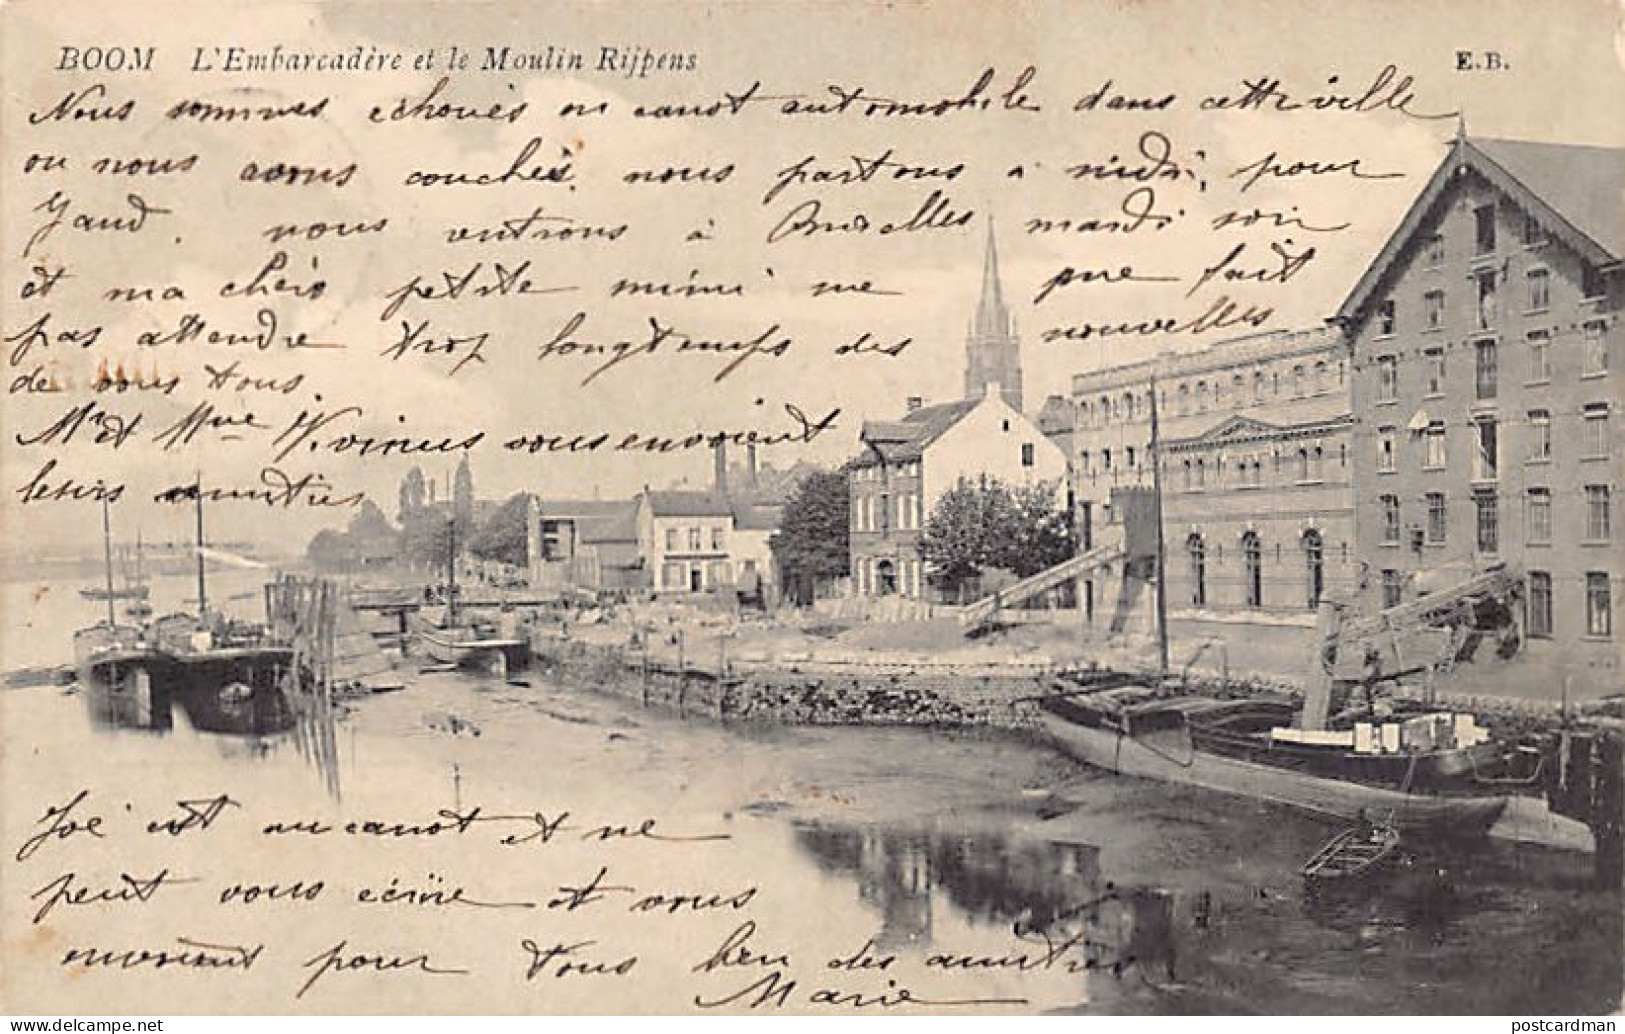 BOOM L'Embarcadère et le Moulin Rijpens
E.B.
Nous sommes échoués en canot automobile dans cette ville
ou nous avons couchés, nous partons à midi, pour
Gand. nous rentrons à Bruxelles mardi soir
et ma chéris petite mimi me
que fait
pas attendre trop longtemps des nouvelles
de vous tous.
Mr et Mme vous envoient
leurs amitiés
est au canot et ne
peut vous écrire et vous
envoient pour tous bien des amitiés
Marie
postcardman